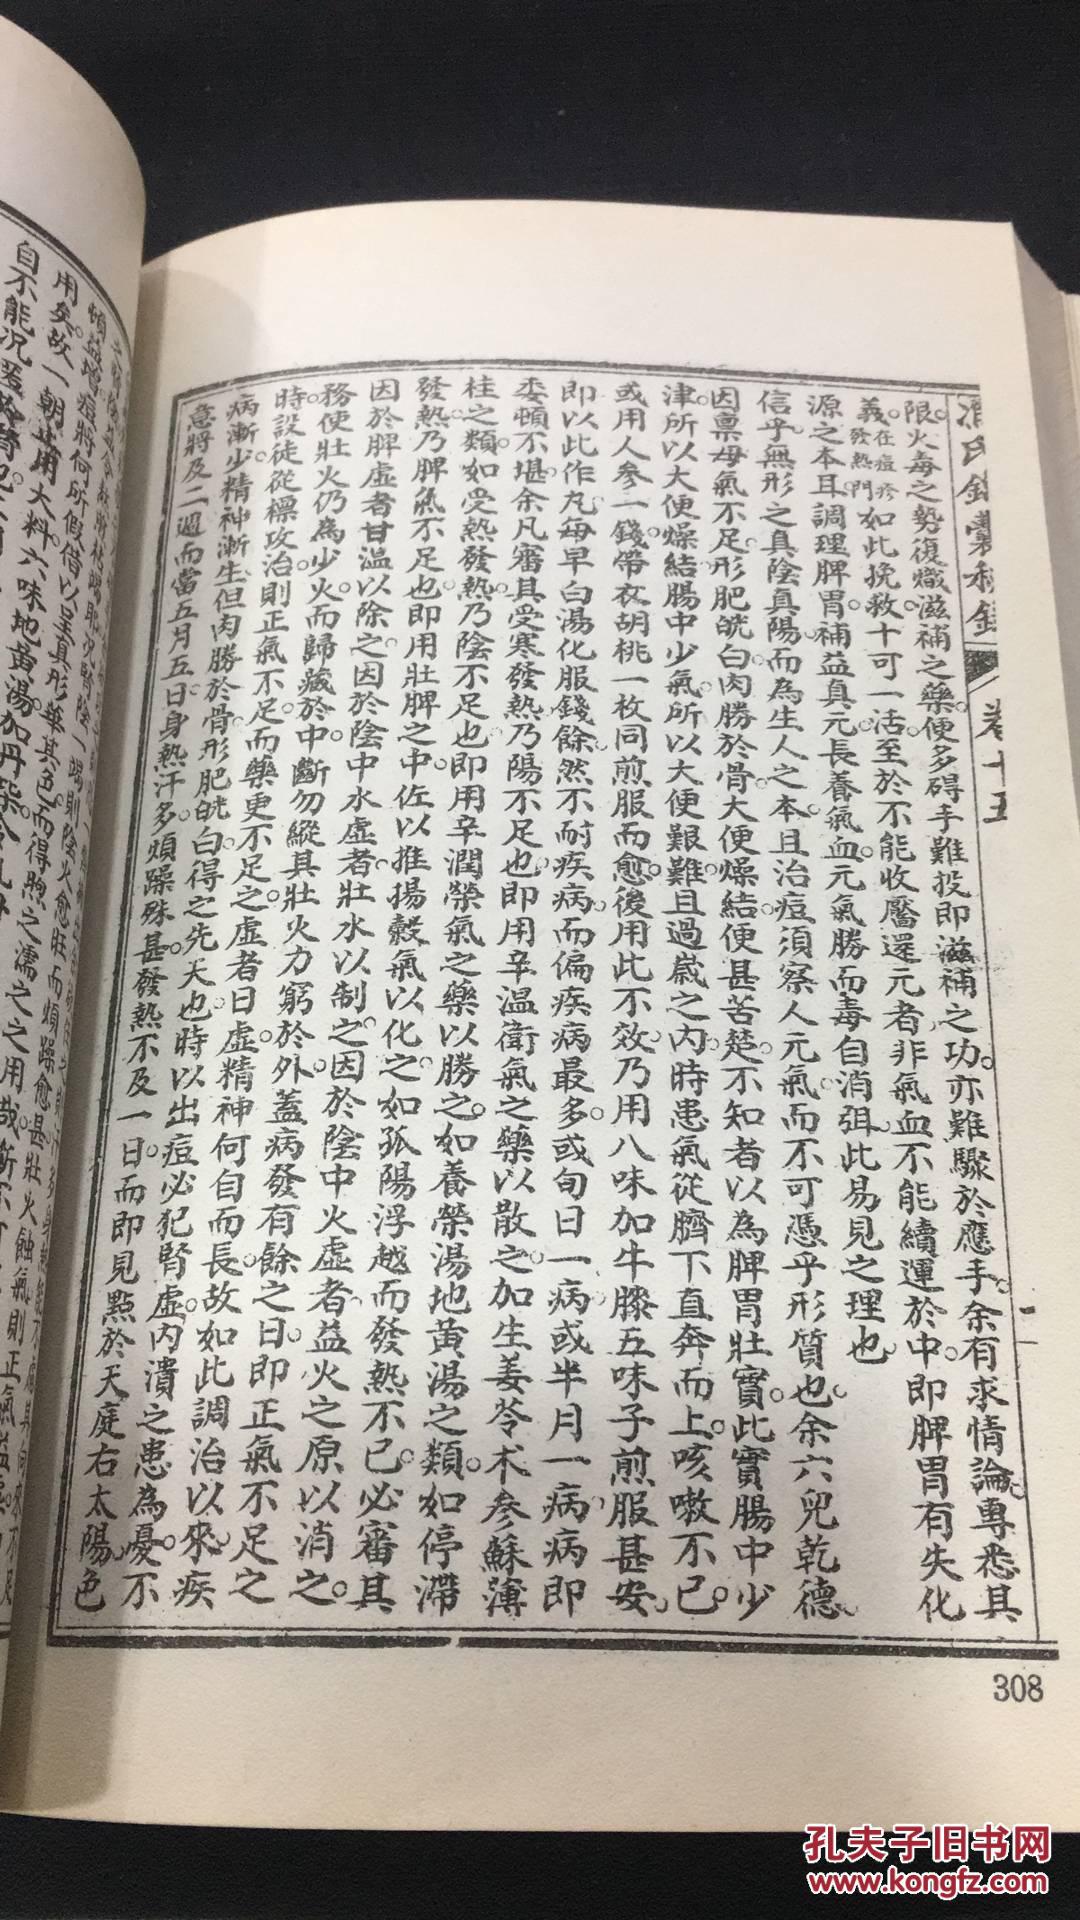 馮氏錦囊秘錄
卷十五
一
限。火毒之勢復熾。滋補之藥。便多碍手難投。即滋補之功。亦難驟於應手。余有求情論。專悉其
義。在痘疹發熱門如此挽救。十可一活。至於不能收靨還元者。非氣血不能續運於中。即脾胃有失化
源之本耳。調理脾胃。補益真元。長養氣血。元氣勝而毒自消弭。此易見之理也。
信乎無形之真陰真陽。而為生人之本。且治痘須察人元氣。而不可憑乎形質也。余六兒乾德。
因稟母氣不足。形肥㿠白。肉勝於骨。大便燥結。便甚苦楚。不知者以為脾胃壯實。此實腸中少
津。所以大便燥結。腸中少氣。所以大便艱難。且過歲之內。時患氣從臍下直奔而上。咳嗽不已。
或用人參一錢。帶衣胡桃一枚。同煎服而愈。後用此不效。乃用八味加牛膝五味子煎服甚安。
即以此作丸。每早白湯化服錢餘。然不耐疾病。而偏疾病最多。或旬日一病。或半月一病。病即
委頓不堪。余凡審其受寒發熱。乃陽不足也。即用辛溫衛氣之藥以散之。加生姜苓朮參蘇薄
桂之類。如受熱發熱。乃陰不足也。即用辛潤榮氣之藥以勝之。如養榮湯地黃湯之類。如停滯
發熱。乃脾氣不足也。即用壯脾之中。佐以推揚穀氣以化之。如孤陽浮越而發熱不已。必審其
因於脾虛者。甘溫以除之。因於陰中水虛者。壯水以制之。因於陰中火虛者。益火之原以消之。
務使壯火仍為少火。而歸藏於中。斷勿縱其壯火力窮於外。蓋病發有餘之日。即正氣不足之
時。設徒從標攻治。則正氣不足。而藥更不足之。虛者日虛。精神何自而長。故如此調治以來。疾
病漸少。精神漸生。但肉勝於骨。形肥㿠白。得之先天也。時以出痘必犯腎虛內潰之患為憂。不
意將及二週。而當五月五日。身熱汗多。煩躁殊甚。發熱不及一日。而即見點於天庭右太陽。色
308
用矣。故一朝萁用大料六味地黃湯。加丹
孔夫子旧书网
www.kongfz.com